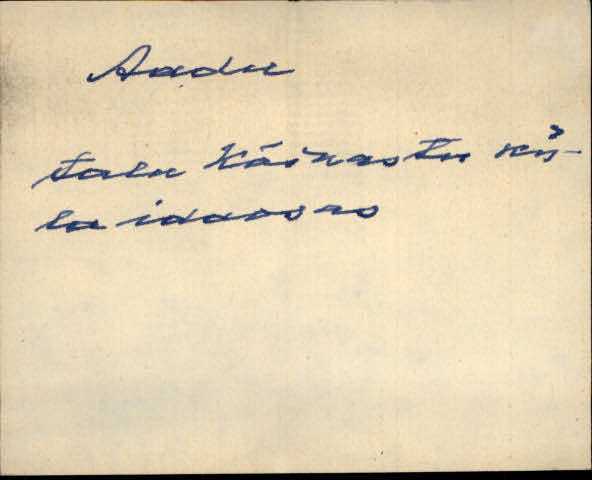 Aadu
talu Käsnastu kü-
la idaosas